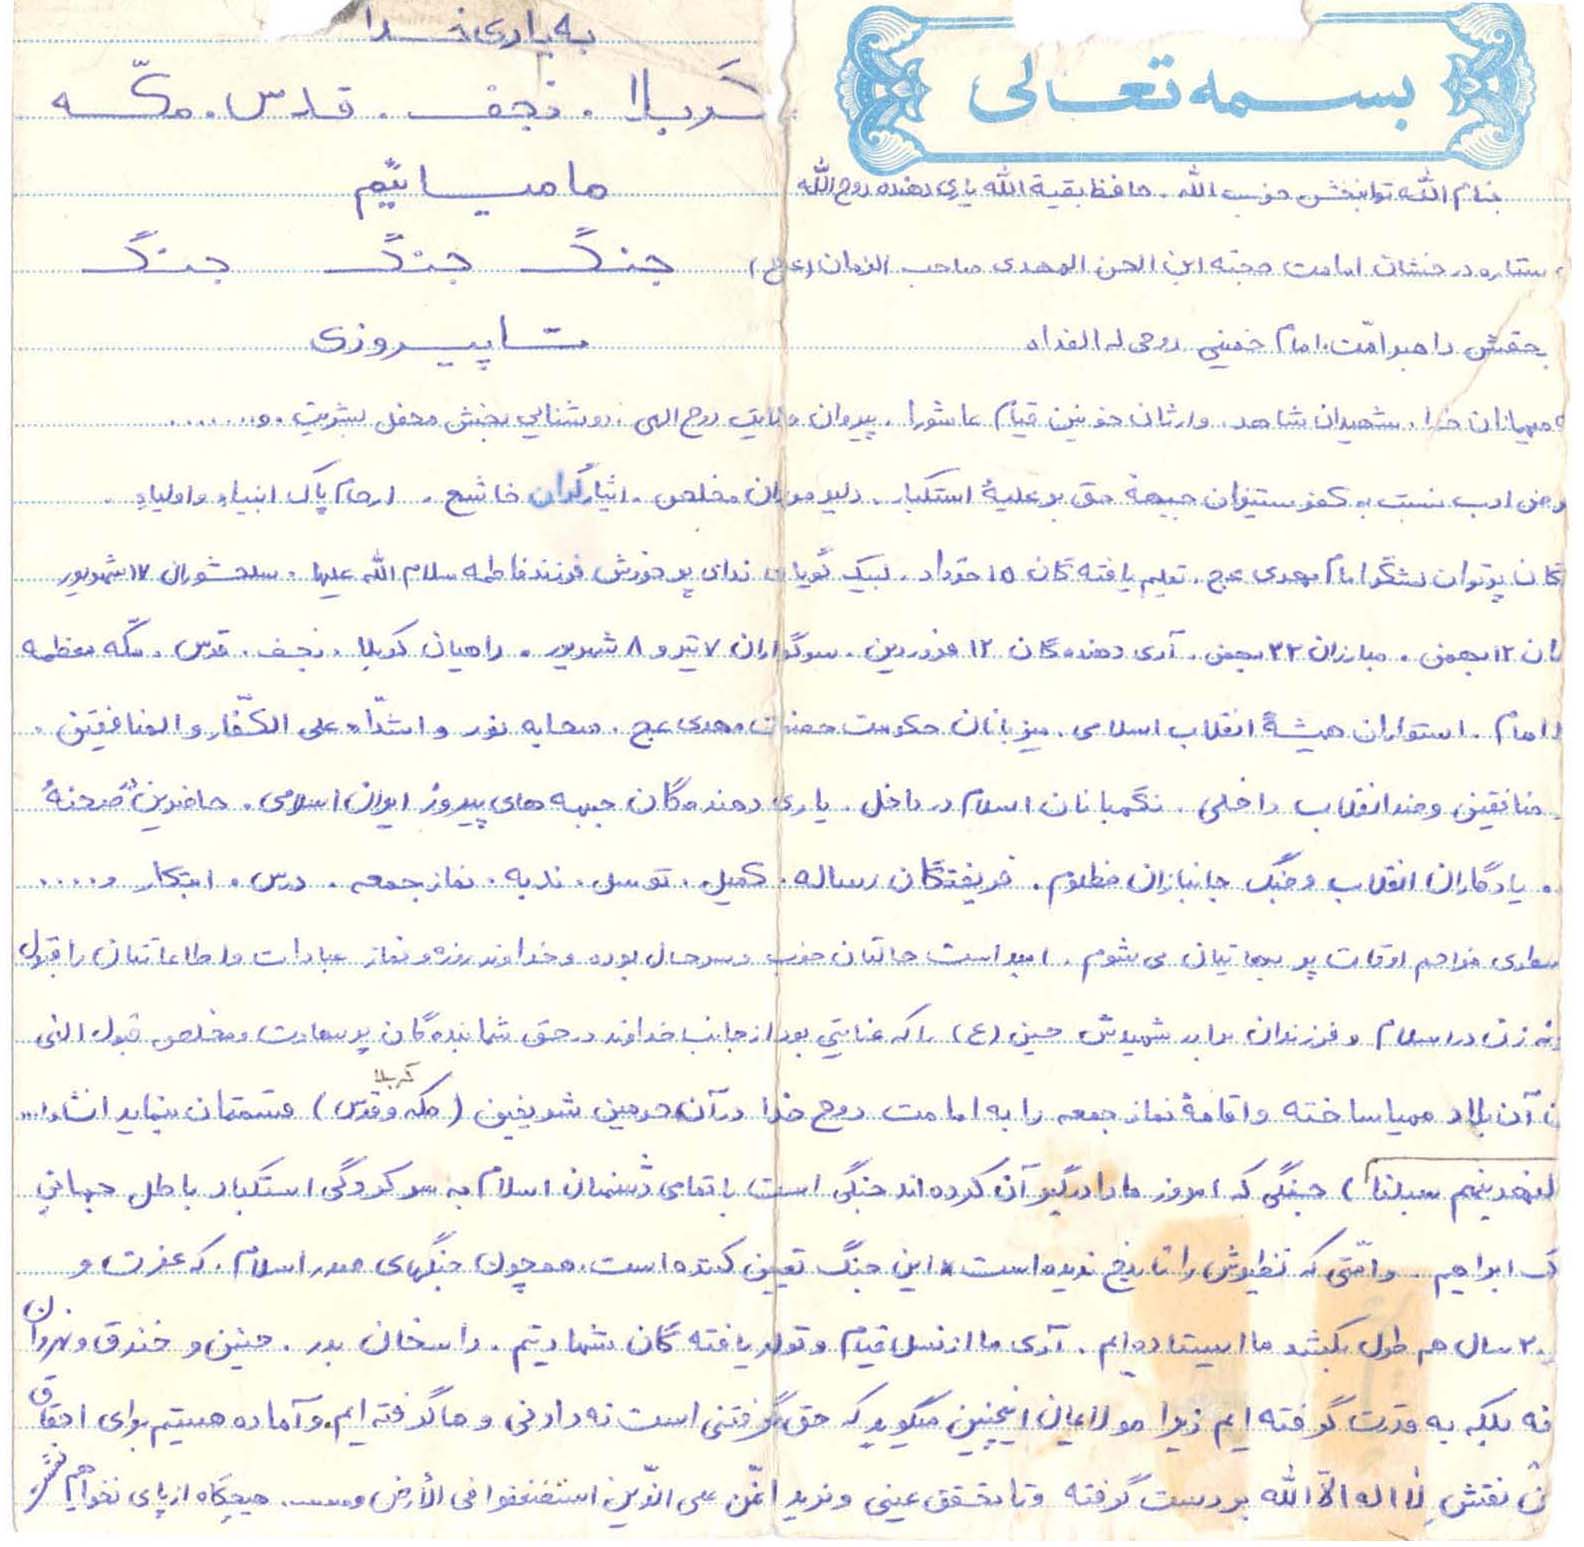 بسمه تعالی
به یاری خدا
کربلا . نجف . قدس . مکّه
ما میائیم
جنگ جنگ جنگ
تا پیروزی
بنام الله توانبخش حزب الله . حافظ بقیة الله یاری دهنده روح الله
ستاره درخشان امامت حجته ابن الحسن المهدی صاحب الزمان (عج)
بحقش راهبر امّت، امام خمینی روحی له الفداه
میهمانان خدا . شهیدان شاهد . وارثان خونین قیام عاشورا . پیروان ولایت روح الهی . روشنایی بخش محفل بشریت . و.......
عرض ادب نسبت به کفر ستیزان جبهۀ حق بر علیۀ استکبار . دلیرمردان مخلص . ایثارگران خاشع . ارحام پاک انبیاء و اولیاء .
گان پرتوان لشگر امام مهدی عج . تعلیم یافته گان ۱۵ خرداد . لبیک گویان ندای پر خروش فرزند فاطمه سلام الله علیها . سلحشوران ۱۷ شهریور
۱۲ بهمن . مبارزان ۲۲ بهمن . آری دهنده گان ۱۲ فروردین . سوگواران ۷ تیر و ۸ شهریور . راهیان کربلا . نجف . قدس . مکّه معظمه
امام . استواران همیشۀ انقلاب اسلامی . میزبانان حکومت حضرت مهدی عج . صحابه نور و اشدّاء علی الکفّار و المنافقین .
منافقین و ضد انقلاب داخلی . نگهبانان اسلام در داخل . یاری دهنده گان جبهه های پیروز ایران اسلامی . حاضرین صحنۀ
. یادگاران انقلاب و جنگ جانبازان مظلوم . فریفتگان رساله . کمیل . توسل . ندبه . نماز جمعه . درس . ابتکار و ....
سطری مزاحم اوقات پر بهایتان می شوم . امید است حالتان خوب و سرحال بوده و خداوند روزه و نماز عبادات و اطاعاتتان را قبول
زن در اسلام و فرزندان برابر شهیدش حسین (ع) را که عنایتی بود از جانب خداوند در حق شما بنده گان پر سعادت و مخلص قبول الهی
آن بلاد مهیا ساخته و اقامۀ نماز جمعه را به امامت روح خدا در آن حرمین شریفین (مکه و کربلا قدس) قسمتتان بنماید انشاء...
لنهدینهم سبلنا) جنگی که امروز ما را درگیر آن کرده اند جنگی است با تمامی دشمنان اسلام به سرکردگی استکبار باطل جهانی
ابراهیم . و امّتی که نظیرش را تاریخ ندیده است . این جنگ تعیین کننده است . همچون جنگهای صدر اسلام . که عزت و
۲۰ سال هم طول بکشد ما ایستاده ایم . آری ما از نسل قیام و تولد یافته گان شهادتیم . راسخان بدر . حنین و خندق و نهروان
بلکه به قدرت گرفته ایم زیرا مولایمان اینچنین میگوید که حق گرفتنی است نه دادنی و ما گرفته ایم . و آماده هستیم برای احقاق
نقش لا اله الاّ الله بر دست گرفته و تا تحقق عینی و نرید انّمن علی الذّین استضعفوا فی الأرض و...... هیچگاه از پای نخواهیم نشست